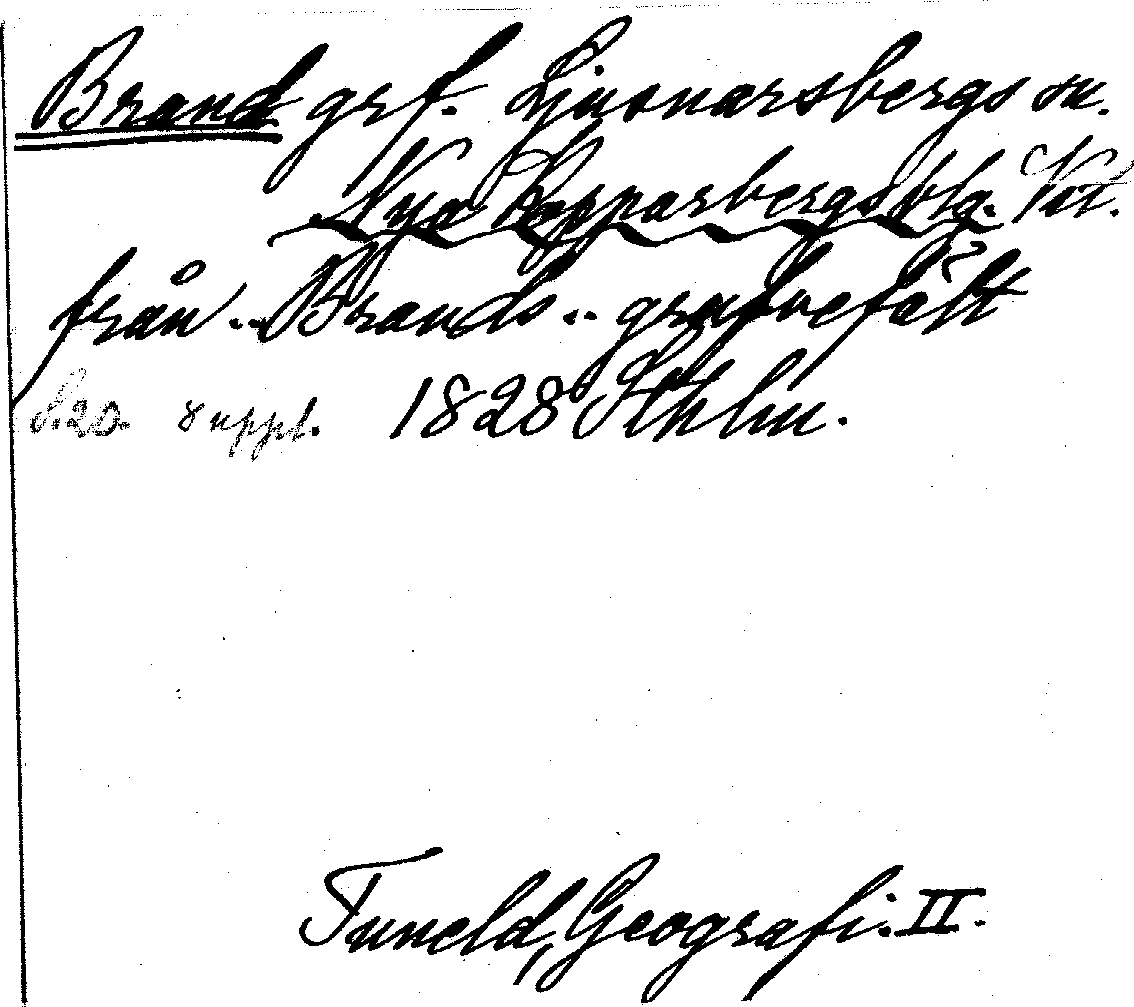 Brand grf. Ljusnarsbergs sn.
Nya Kopparbergs blg. Vstl.
från "Brands" grufvefält
s. 20. suppl. 1828 Sthlm.
Tuneld, Geografi. II.